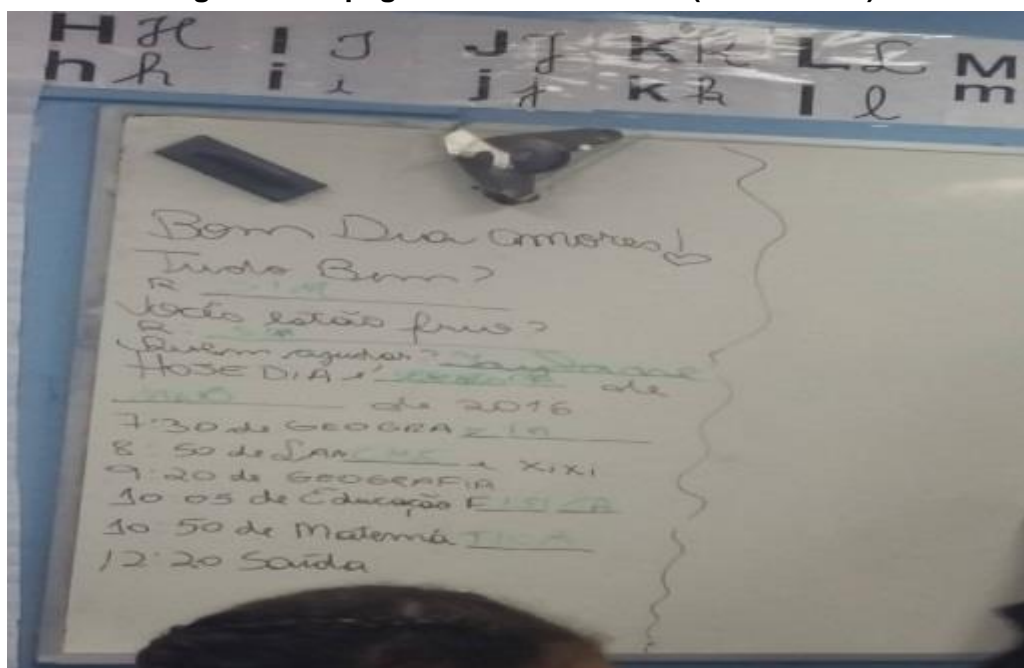 H H I I J J K K L L M
h h i i j j k k l l m
Bom Dia amores!
Tudo Bem?
R
Vocês estão
R
Quem ajudar?
HOJE DIA é de
de 2016
7:30 de GEOGRAFIA
8:50 de LANCHE e XIXI
9:20 de GEOGRAFIA
10 05 de Educação FISICA
10 50 de MatemáTICA
12:20 Saída